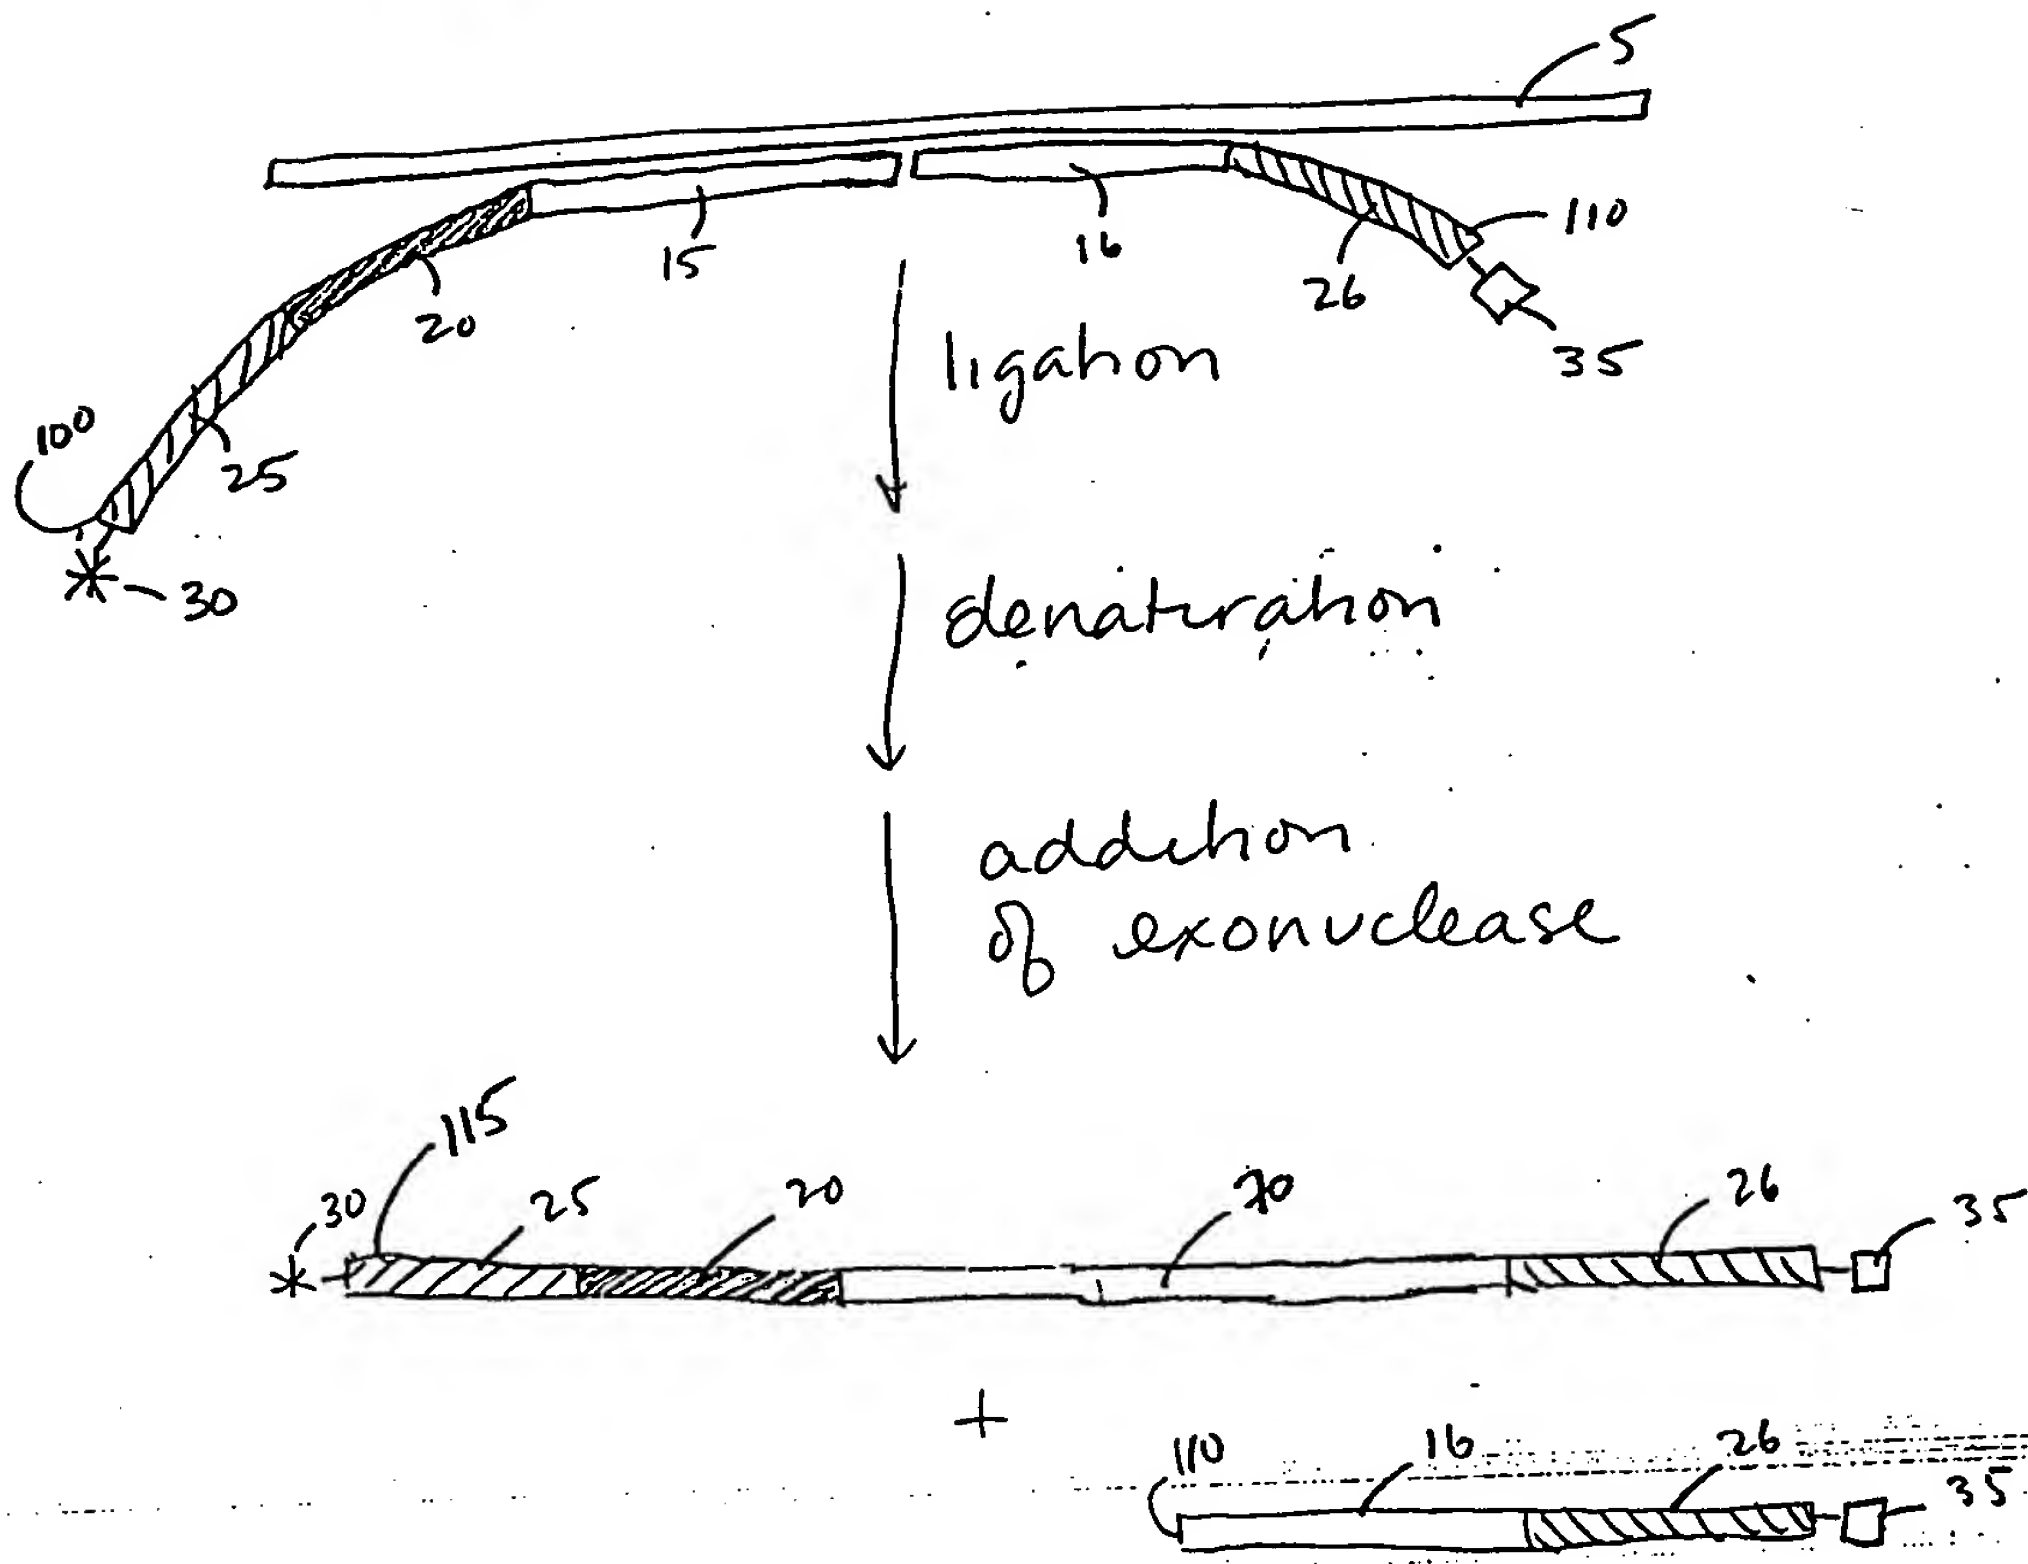 5
15
16
110
20
26
35
ligation
100
25
30
denaturation
addition
of exonuclease
115
30
25
20
70
26
35
+
110
16
26
35